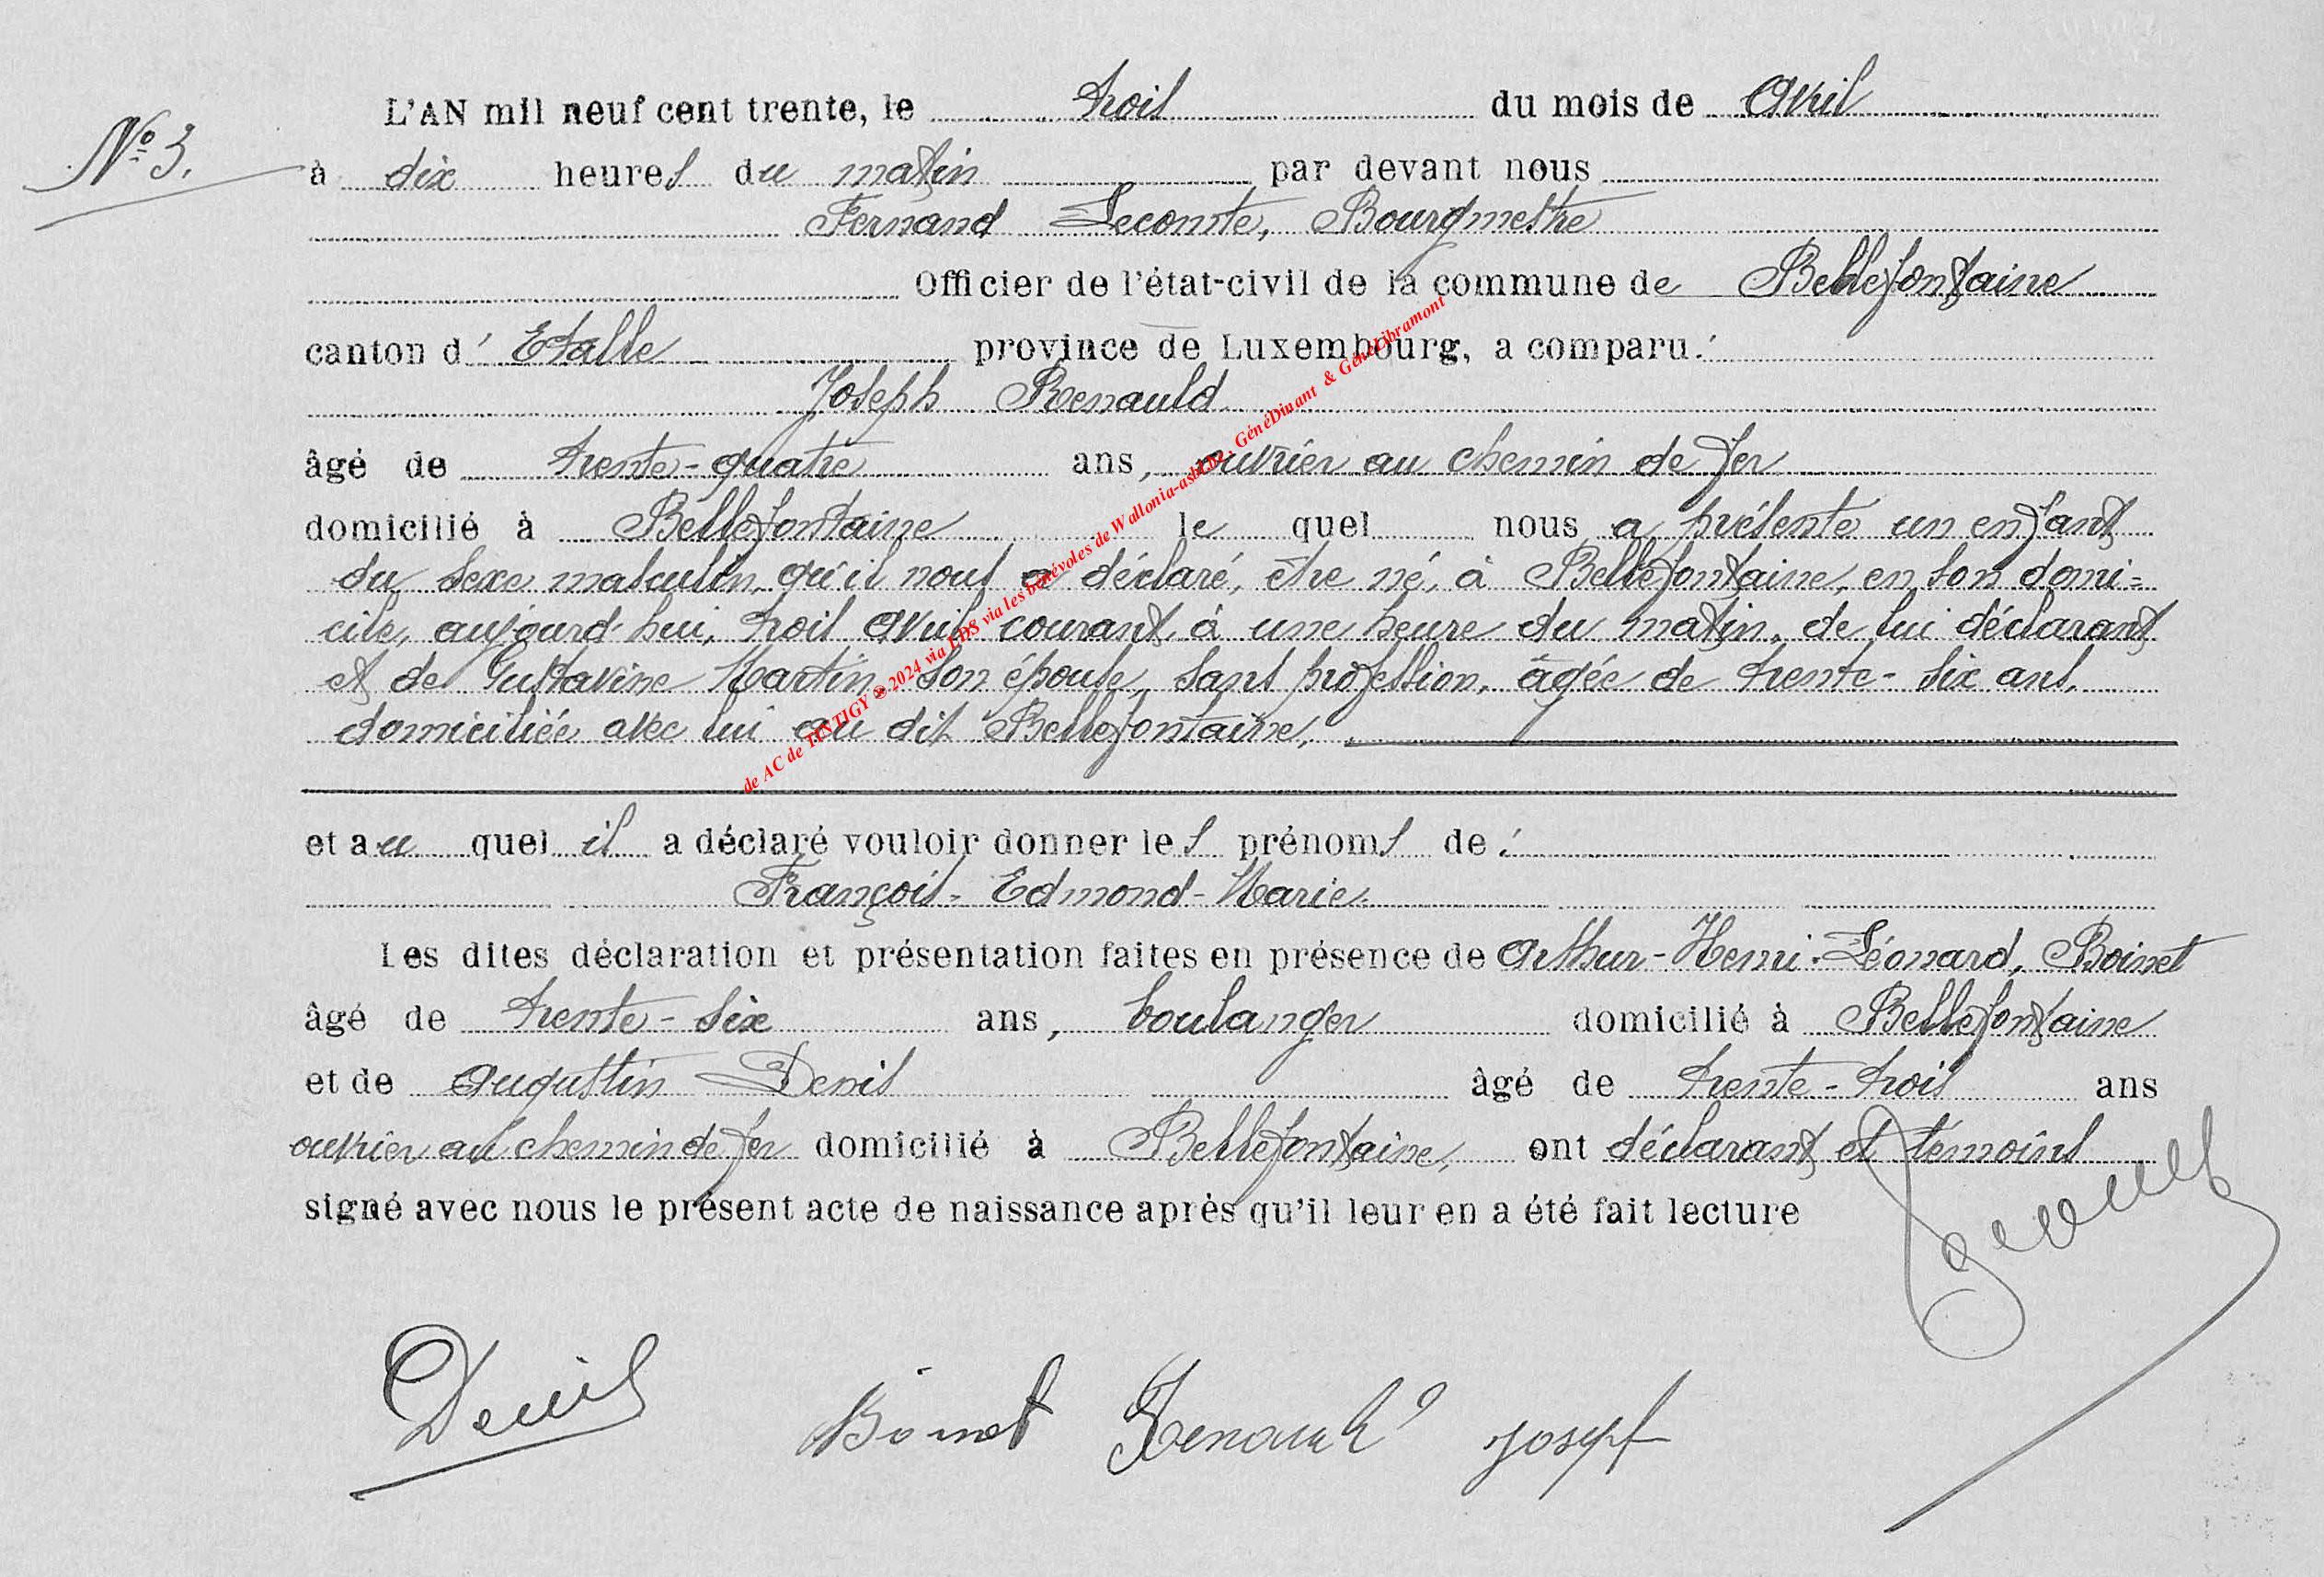 L'AN mil neuf cent trente, le trois du mois de Avril
N° 3.
à dix heures du matin par devant nous
Fernand Lecomte, Bourgmestre
Officier de l'état-civil de la commune de Bellefontaine
canton d' Etalle province de Luxembourg, a comparu :
Joseph Renauld
âgé de trente-quatre ans, ouvrier au chemin de fer
domicilié à Bellefontaine le quel nous a présenté un enfant
du sexe masculin, qu'il nous a déclaré, être né, à Bellefontaine, en son domi=
cile, aujourd'hui, trois Avril courant, à une heure du matin, de lui déclarant
et de Gustavine Martin, son épouse, sans profession, âgée de trente-six ans,
domiciliée avec lui au dit Bellefontaine,
et au quel il a déclaré vouloir donner les prénoms de :
François-Edmond-Marie.
Les dites déclaration et présentation faites en présence de Arthur-Henri-Léonard, Boinet
âgé de trente-six ans, boulanger domicilié à Bellefontaine
et de Augustin Denis âgé de trente-trois ans
ouvrier au chemin de fer domicilié à Bellefontaine, ont déclarant et témoins
signé avec nous le présent acte de naissance après qu'il leur en a été fait lecture
Denis Boinet Renauld Joseph
de AC de TINTIGY © 2024 via FDS via les bénévoles de Wallonia-asbl.be, GénéDinant & GénéLibramont